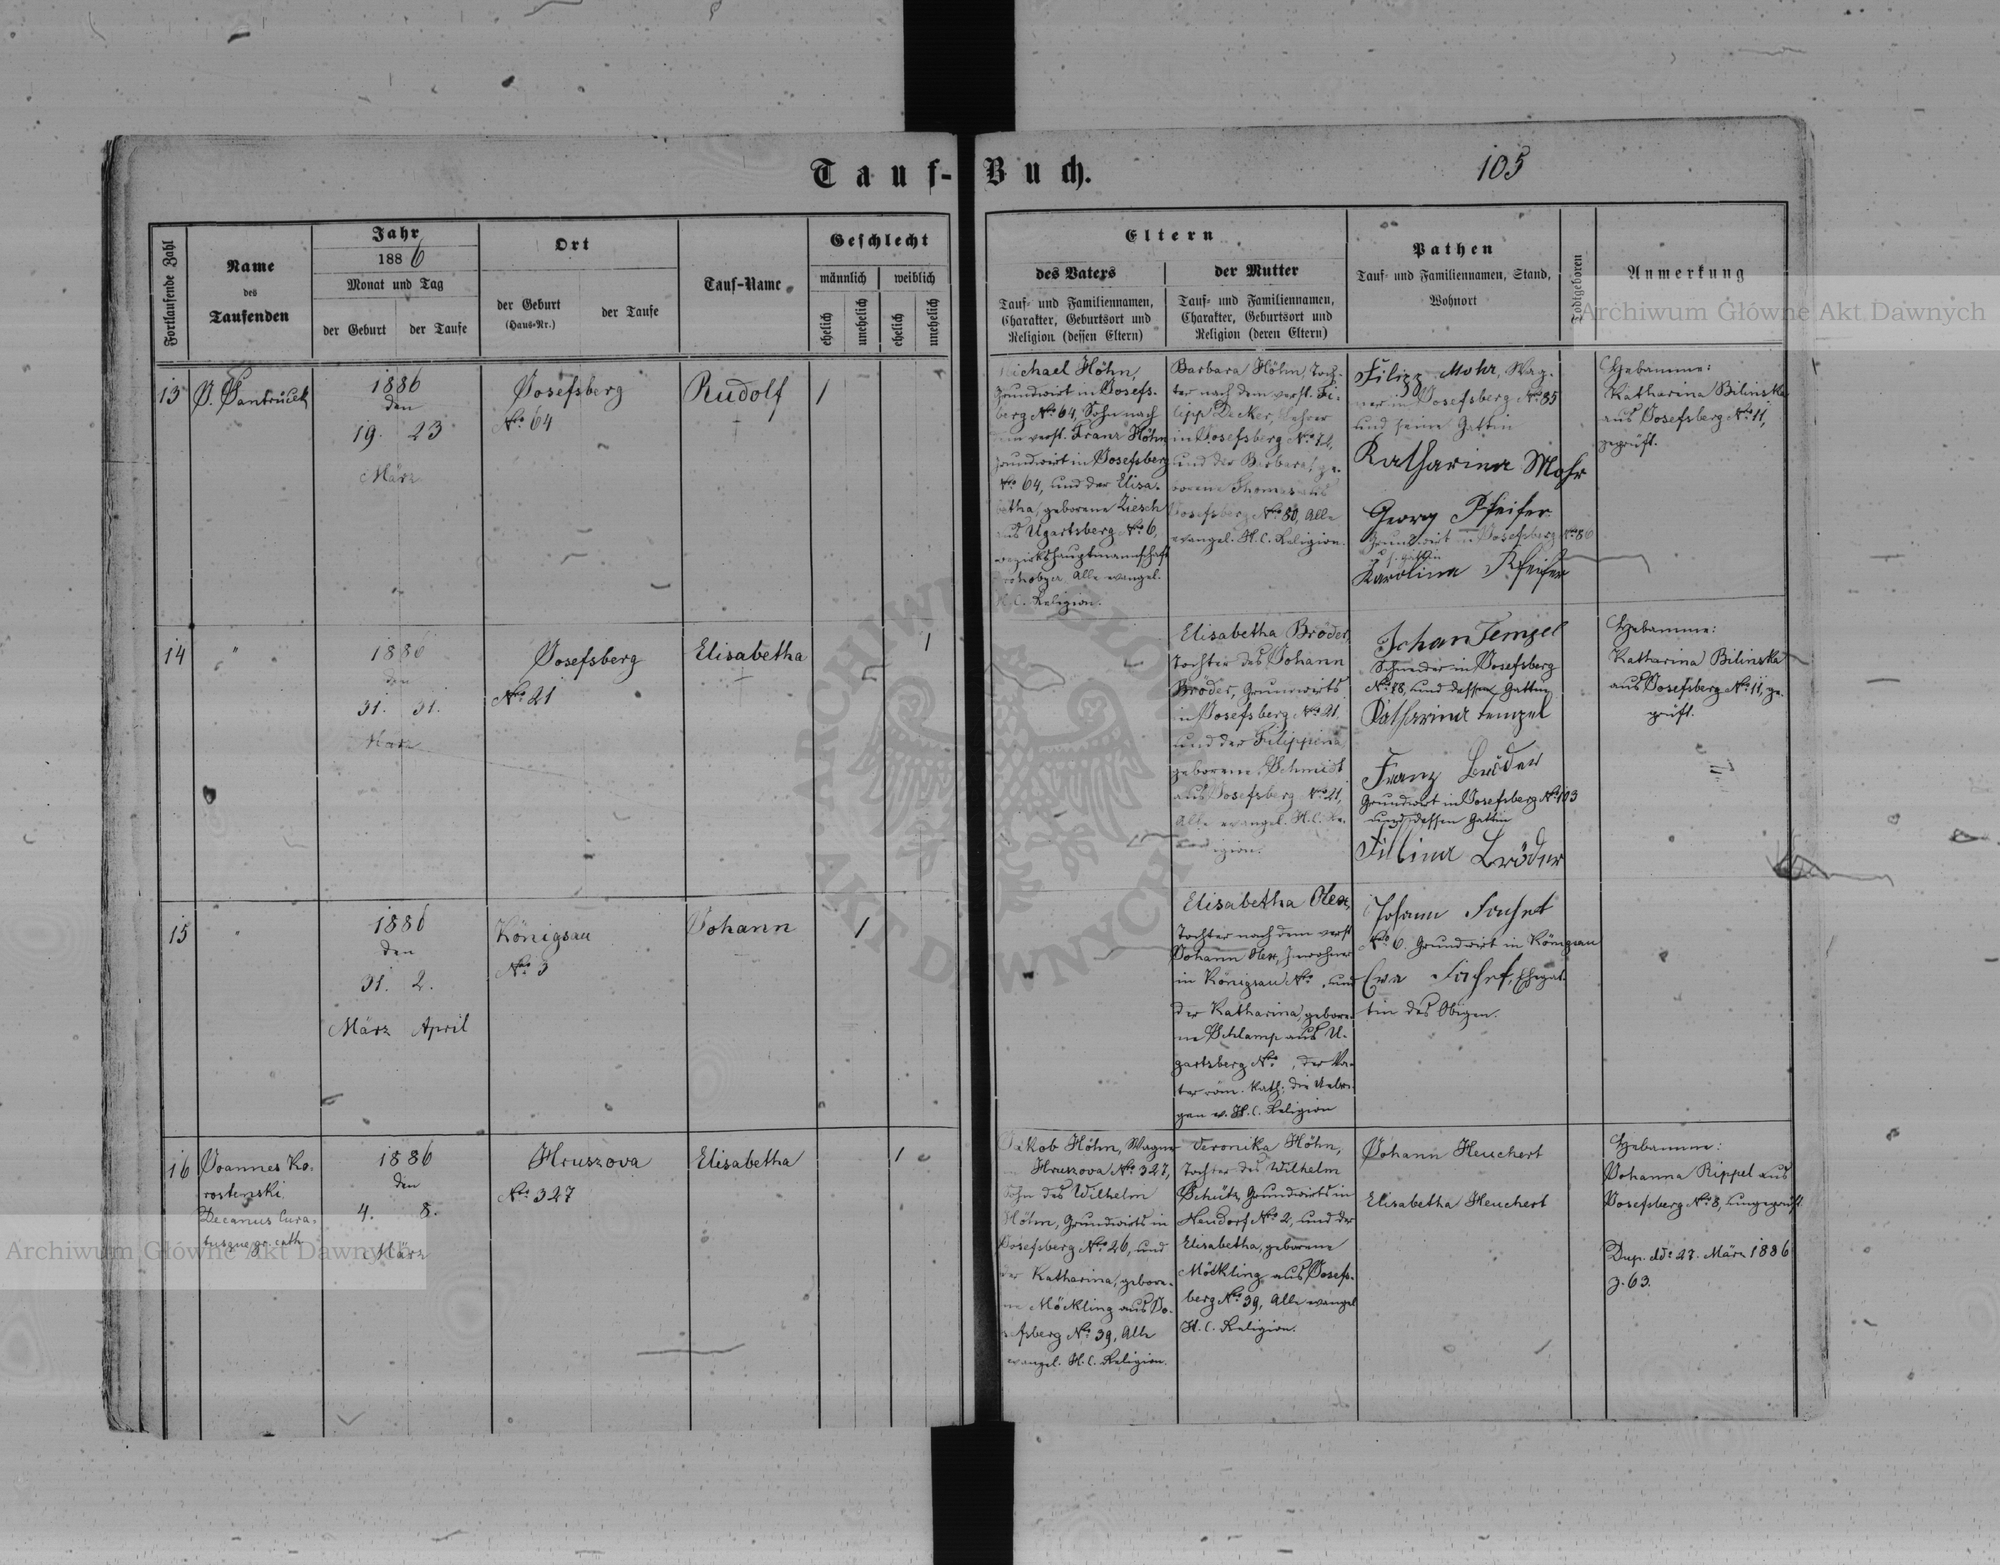 Tauf-Buch.
105
Fortlaufende Zahl
Name
des
Taufenden
Jahr
1886
Monat und Tag
der Geburt
der Taufe
Ort
der Geburt
(Haus-Nr.)
der Taufe
Tauf-Name
Geschlecht
männlich
weiblich
ehelich
unehelich
ehelich
unehelich
Eltern
des Vaters
Tauf- und Familiennamen,
Charakter, Geburtsort und
Religion (dessen Eltern)
der Mutter
Tauf- und Familiennamen,
Charakter, Geburtsort und
Religion (deren Eltern)
Pathen
Tauf- und Familiennamen, Stand,
Wohnort
Todtgeboren
Anmerkung
13
1886
den
19. 23
März
Josefsberg
No 64
Rudolf
1
Michael Höhn,
Grundwirt in Josefs-
berg No 64, Sohn nach
dem verst. Franz Höhn
Grundwirt in Josefsberg
No 64, und der Elisa-
betha, geborene Ziesch
aus Ugartsberg No 6,
Bezirkshauptmannschaft
Alle evangel.
H.C. Religion.
Barbara Höhn, Toch-
ter nach dem verst. Fi-
lipp Decker, Lehrer
in Josefsberg No
und der Barbara, ge-
borene Thomas aus
Josefsberg No 80, Alle
evangel. H.C. Religion.
Filipp Mohr, Wag-
ner in Josefsberg No 85
und seine Gattin
Katharina Mohr
Georg Pfeifer
Grundwirt in Josefsberg No 86
u. s. Gattin
Karolina Pfeifer
Hebamme:
Katharina Bilinska
aus Josefsberg No 11,
geprüft.
14
"
1886
den
31. 31.
März
Josefsberg
No 21
Elisabetha
1
Elisabetha Bröder,
Tochter des Johann
Bröder, Grundwirts
in Josefsberg No 21,
und der Filippina
geborene Schmidt
aus Josefsberg No 21,
Alle evangel. H.C. Re-
ligion.
Johan Tempel
Schneider in Josefsberg
No 18, und dessen Gattin
Katharina Tempel
Franz Bröder
Grundwirt in Josefsberg No 103
und dessen Gattin
Filbina Bröder
Hebamme:
Katharina Bilinska
aus Josefsberg No 11, ge-
prüft.
15
"
1886
den
31. 2.
März April
Königsau
No 3
Johann
1
Elisabetha
Tochter nach dem verst.
Johann
in Königsau No , und
der Katharina, gebore-
ne Schlamp aus U-
gartsberg No , der Va-
ter röm. kath., die Uebri-
gen ev. H.C. Religion
Johann
No 6. Grundwirt in Königsau
Eva , Ehegat-
tin des Obigen.
16
Joannes Ko-
rostenski
Decanus Cura-
tusque gr. cath
1886
den
4. 8.
März
Hruszova
No 327
Elisabetha
1
Jakob Höhn, Wagner
in Hruszova No 327,
Sohn des Wilhelm
Höhn, Grundwirts in
Josefsberg No 26, und
der Katharina, gebore-
ne Möckling aus Jo-
sefsberg No 39, Alle
evangel. H.C. Religion.
Veronika Höhn,
Tochter des Wilhelm
Schütz, Grundwirts in
Neudorf No 2, und der
Elisabetha, geborene
Möckling aus Josefs-
berg No 39, Alle evangel
H.C. Religion.
Johann Heuchert
Elisabetha Heuchert
Hebamme:
Johanna Rippel aus
Josefsberg No 8, ungeprüft.
Dup. ddo 23. März 1886
z. 63.
Archiwum Główne Akt Dawnych
Archiwum Główne Akt Dawnych
ARCHIWUM GŁÓWNE
AKT DAWNYCH